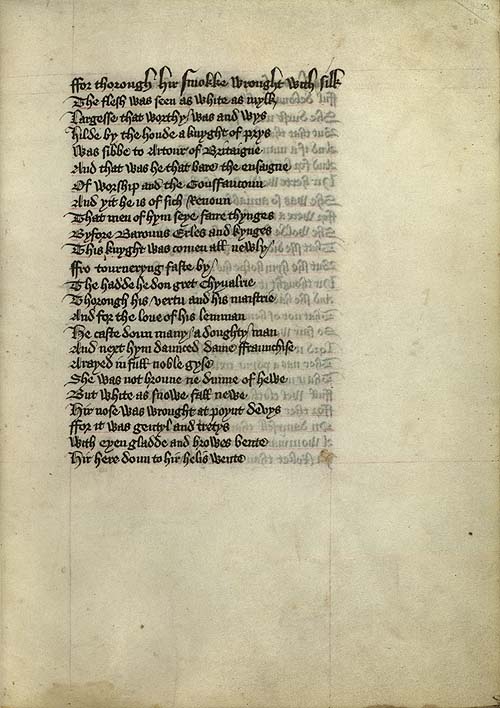 ffor thorough hir smokke wrought with silk
The flesh was seen as white as mylk
Largesse that worthy was and wys
hilde by the honde a knyght of prys
Was sibbe to Artour of Britaigne
And that was he that bare the ensaigne
Of worship and the Gounfaucoun
And yit he is of sich renoun
That men of hym seye faire thynges
Byfore Barouns Erles and kynges
This knyght was comen all newly
ffro tourneryng faste by
The hadde he don gret Chyualrie
Thorough his vertu and his maistrie
And for the love of his lemman
He caste doun many a doughty man
And next hym daunced dame ffraunchise
Arayed in full noble gyse
She was not broune ne dunne of hewe
But white as snowe fall newe
Hir nose was wrought at poynt devys
ffor it was gentyl and tretys
With eyen gladde and browes bente
Hir here doun to hir helis wente